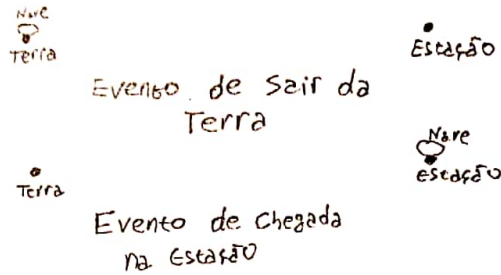 Nave
Terra
Estação
Evento de Sair da
Terra
Nave
estação
Terra
Evento de Chegada
na Estação